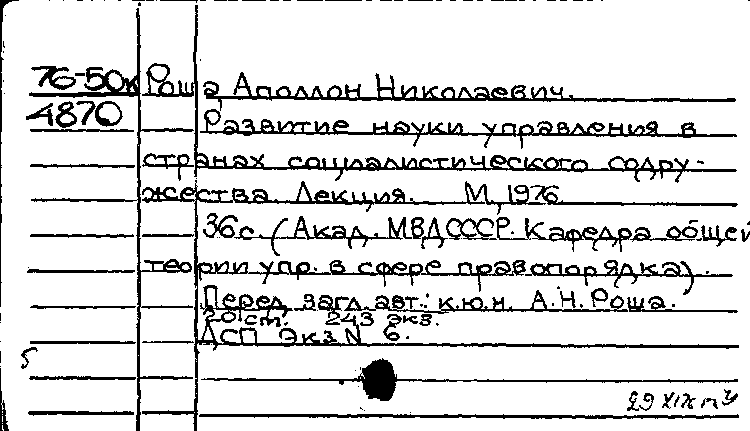 76-50к Роша, Аполлон Николаевич.
4870 Развитие науки управления в
странах социалистического содру-
жества. Лекция. М., 1976
36с. (Акад. МВД СССР. Кафедра общей
теории упр. в сфере правопорядка).
Перед загл. авт.: к.ю.н. А.Н. Роша.
20 см. 243 экз.
ДСП Экз N 6.
5